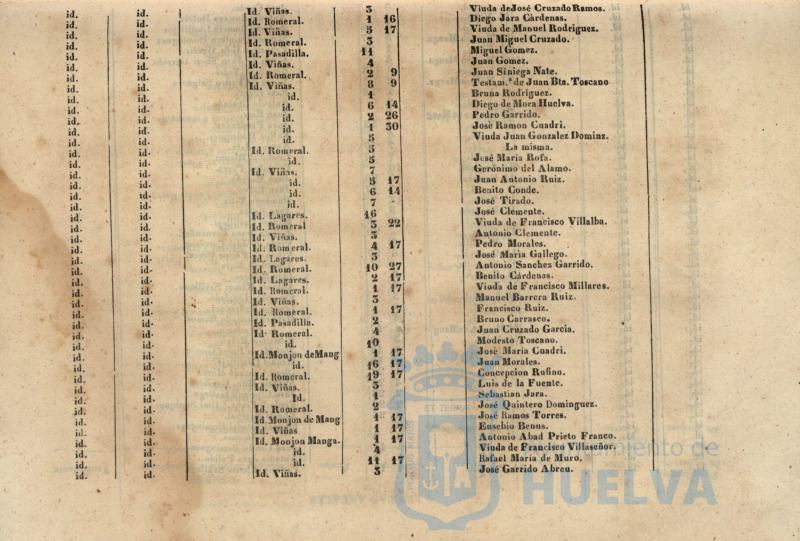 id. id. Id. Viñas. 3 Viuda de José Cruzado Ramos.
id. id. Id. Romeral. 1 16 Diego Jara Cárdenas.
id. id. Id. Viñas. 5 17 Viuda de Manuel Rodriguez.
id. id. Id. Romeral. 3 Juan Miguel Cruzado.
id. id. Id. Pasadilla. 11 Miguel Gomez.
id. id. Id. Viñas. 4 Juan Gomez.
id. id. Id. Romeral. 2 9 Juan Siniega Nate.
id. id. Id. Viñas. 8 9 Testam.ª de Juan Bta. Toscano
id. id. id. 1 Bruna Rodriguez.
id. id. id. 6 14 Diego de Mora Huelva.
id. id. id. 2 26 Pedro Garrido.
id. id. id. 1 30 José Ramon Cuadri.
id. id. id. 5 Viuda Juan Gonzalez Dominz.
id. id. Id. Romeral. 5 La misma.
id. id. id. 5 José Maria Rofa.
id. id. Id. Viñas. 7 Gerónimo del Alamo.
id. id. id. 5 17 Juan Antonio Ruiz.
id. id. id. 6 14 Benito Conde.
id. id. id. 7 - José Tirado.
id. id. Id. Lagares. 16 José Clemente.
id. id. Id. Romeral 3 22 Viuda de Francisco Villalba.
id. id. Id. Viñas. 3 Antonio Clemente.
id. id. Id. Romeral. 4 17 Pedro Morales.
id. id. Id. Lagares. 3 José Maria Gallego.
id. id. Id. Romeral. 10 27 Antonio Sanchez Garrido.
id. id. Id. Lagares. 2 17 Benito Cárdenas.
id. id. Id. Romeral. 1 17 Viuda de Francisco Millares.
id. id. Id. Viñas. 3 Manuel Barrera Ruiz.
id. id. Id. Romeral. 1 17 Francisco Ruiz.
id. id. Id. Pasadilla. 2 Bruno Carrasco.
id. id. Id. Romeral. 4 Juan Cruzado Garcia.
id. id. id. 10 Modesto Toscano.
id. id. Id. Monjon deMang 1 17 José Maria Cuadri.
id. id. id. 16 17 Juan Morales.
id. id. Id. Romeral. 19 17 Concepcion Rufino.
id. id. Id. Viñas. 3 Luis de la Fuente.
id. id. Id. 1 Sebastian Jara.
id. id. Id. Romeral. 2 José Quintero Dominguez.
id. id. Id. Monjon de Mang 1 17 José Ramos Torres.
id. id. Id. Viñas 1 17 Eusebio Benus.
id. id. Id. Monjon Manga. 1 17 Antonio Abad Prieto Franco.
id. id. id. 4 Viuda de Francisco Villaseñor.
id. id. id. 11 17 Rafael Maria de Muro.
id. id. Id. Viñas. 3 José Garrido Abreu.
HUELVA